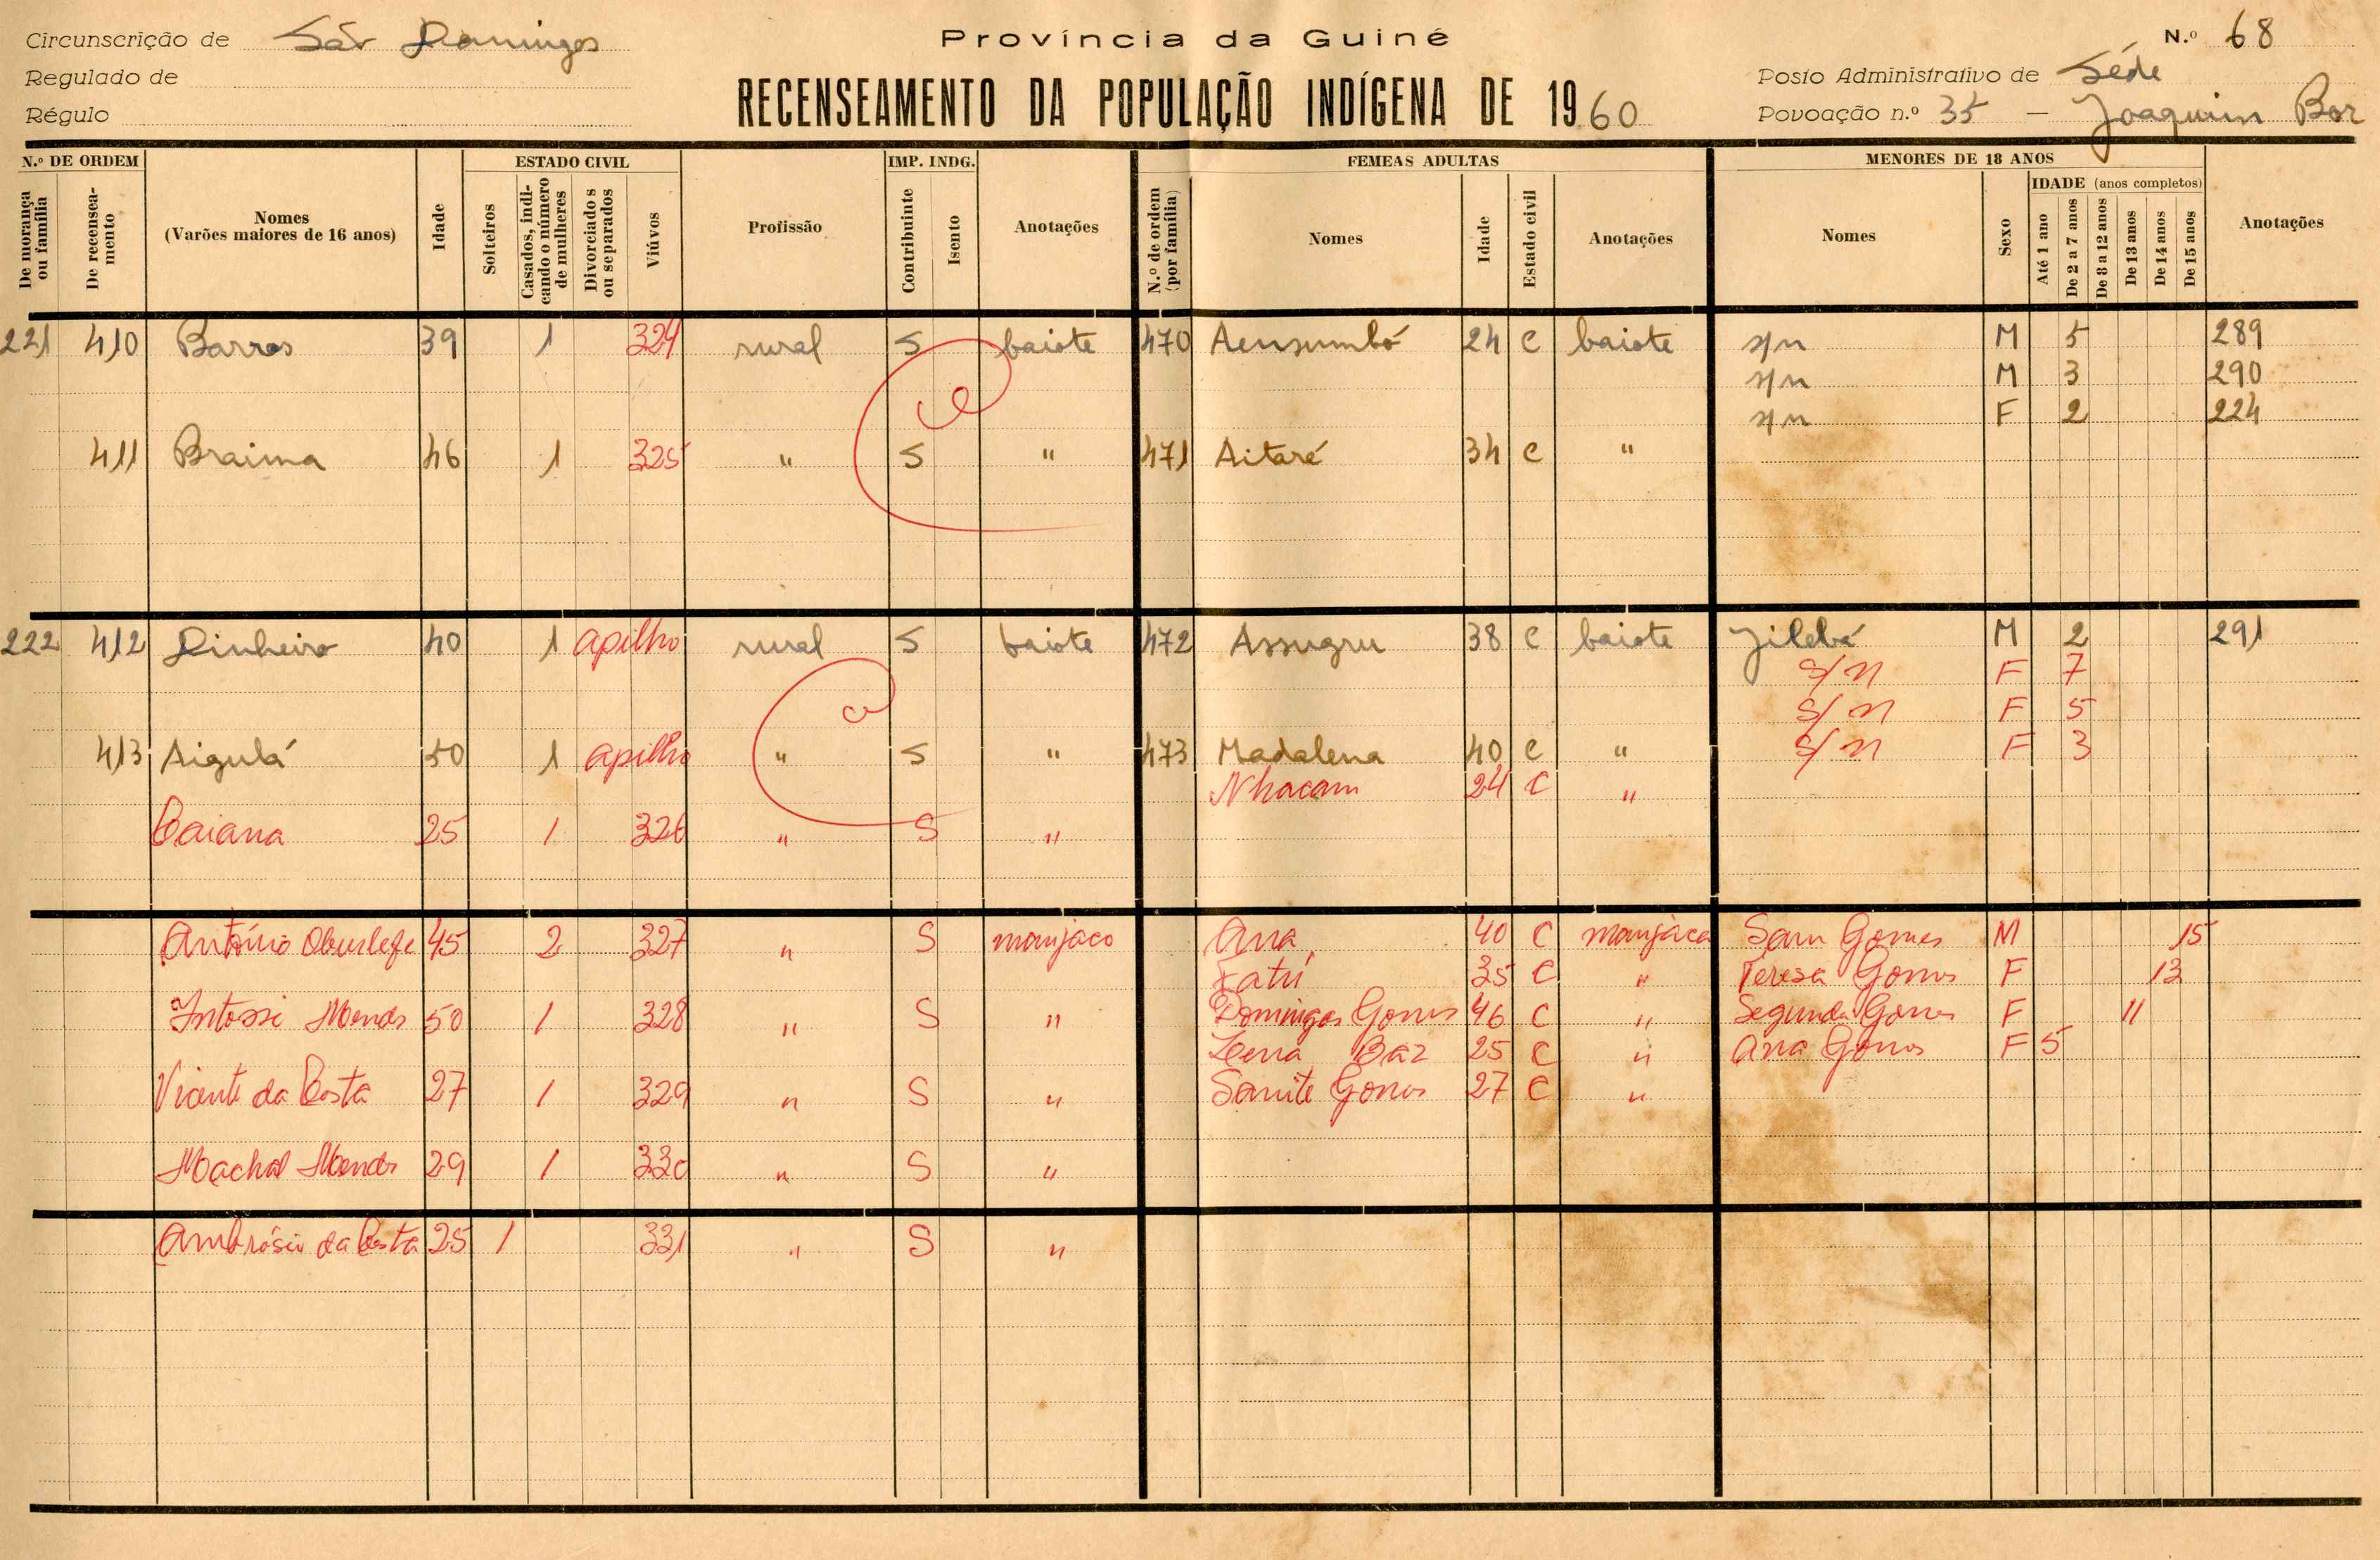 Circunscrição de São Domingos
Regulado de
Régulo
Província da Guiné
RECENSEAMENTO DA POPULAÇÃO INDÍGENA DE 1960
N.º 68
Posto Administrativo de Séde
Povoação n.º 35 — Joaquim Bor
N.º DE ORDEM ESTADO CIVIL IMP. INDG. FEMEAS ADULTAS MENORES DE 18 ANOS
De morança ou família De recenseamento Nomes (Varões maiores de 16 anos) Idade Solteiros Casados, indicando o número de mulheres Divorciados ou separados Viúvos Profissão Contribuinte Isento Anotações N.º de ordem (por família) Nomes Idade Estado civil Anotações Nomes Sexo IDADE (anos completos) Até 1 ano De 2 a 7 anos De 8 a 12 anos De 13 anos De 14 anos De 15 anos Anotações
221 410 Barros 39 1 324 rural S baiote 470 Aensumbó 24 C baiote s/n M 5 289
s/n M 3 290
s/n F 2 224
411 Braima 46 1 325 " S " 471 Aitaré 34 C "
222 412 Dinheiro 40 1 apilho rural S baiote 472 Assugru 38 C baiote Jilebá M 2 291
S/n F 7
S/n F 5
413 Aigulá 50 1 apilho " S " 473 Madalena 40 C " S/n F 3
Nhacam 24 C "
Caiana 25 1 326 " S "
António 45 2 327 " S manjaco Ana 40 C manjaca Sam Gomes M 15
Fatú 35 C " Teresa Gomes F 13
Intossi Mendes 50 1 328 " S " Domingas Gomes 46 C " Segunda Gomes F 11
25 C " Ana Gomes F 5
Vicente da Costa 27 1 329 " S " Samite Gomes 27 C "
Machol Mendes 29 1 330 " S "
Ambrósio da Costa 25 1 331 " S "